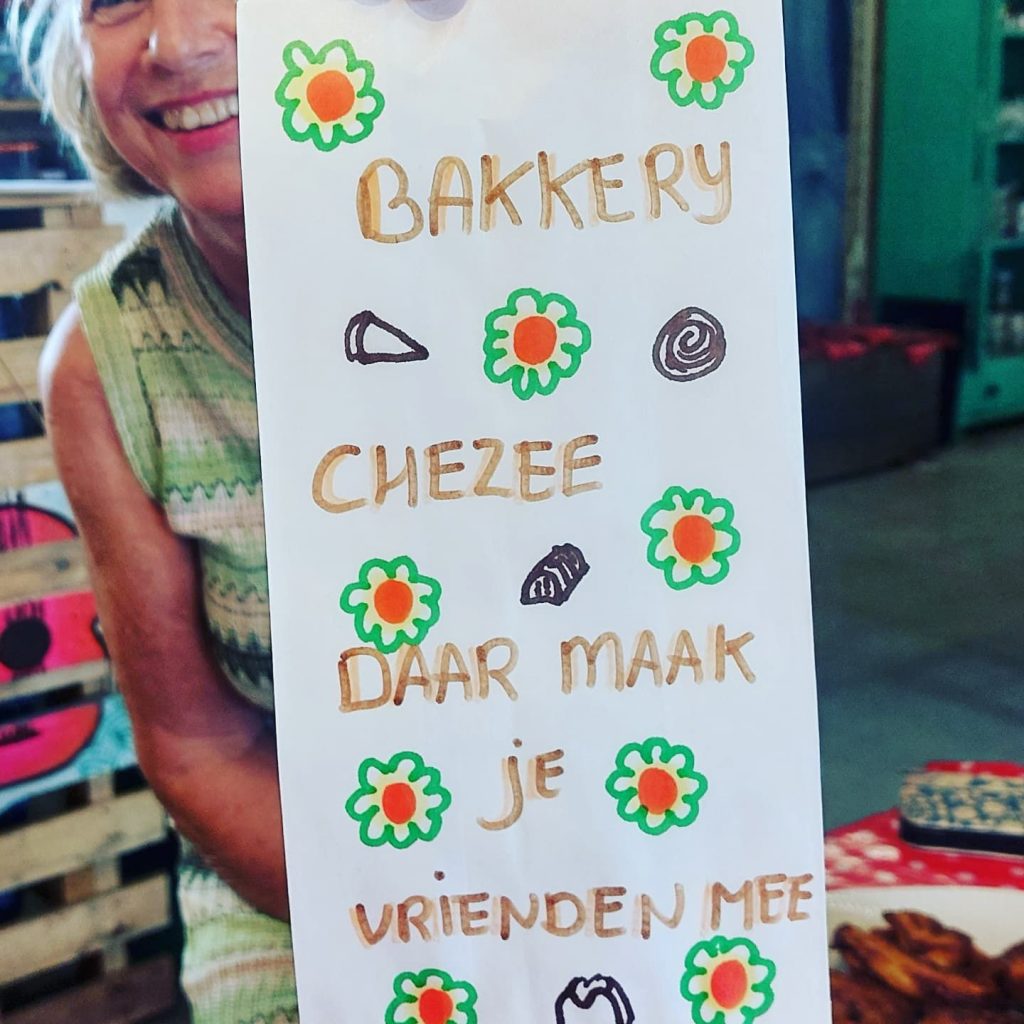 BAKKERY
CHEZEE
DAAR MAAK
je
VRIENDEN MEE